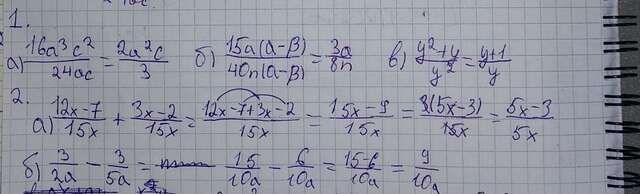 1.
а) 16a³c²/24ac = 2a²c/3 б) 15a(a-β)/40n(a-β) = 3a/8n в) y²+y/y² = y+1/y
2.
а) 12x-7/15x + 3x-2/15x = 12x-7+3x-2/15x = 15x-9/15x = 3(5x-3)/15x = 5x-3/5x
б) 3/2a - 3/5a = 15/10a - 6/10a = 15-6/10a = 9/10a